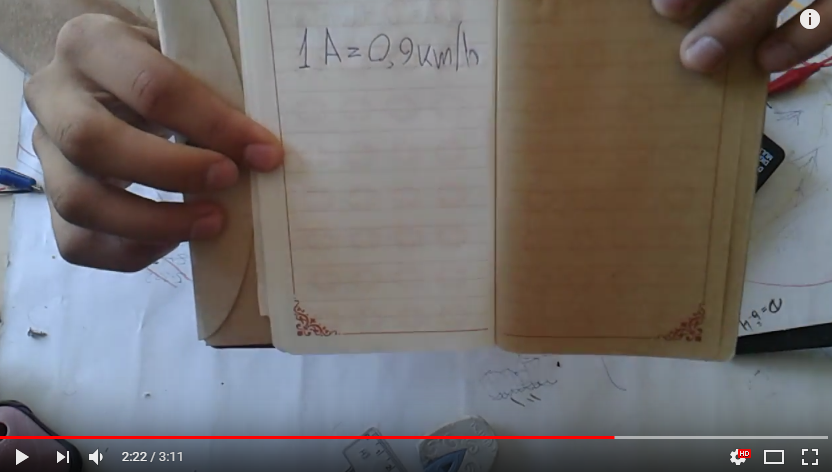 1 A = 0,9 km/h
2:22 / 3:11
HD